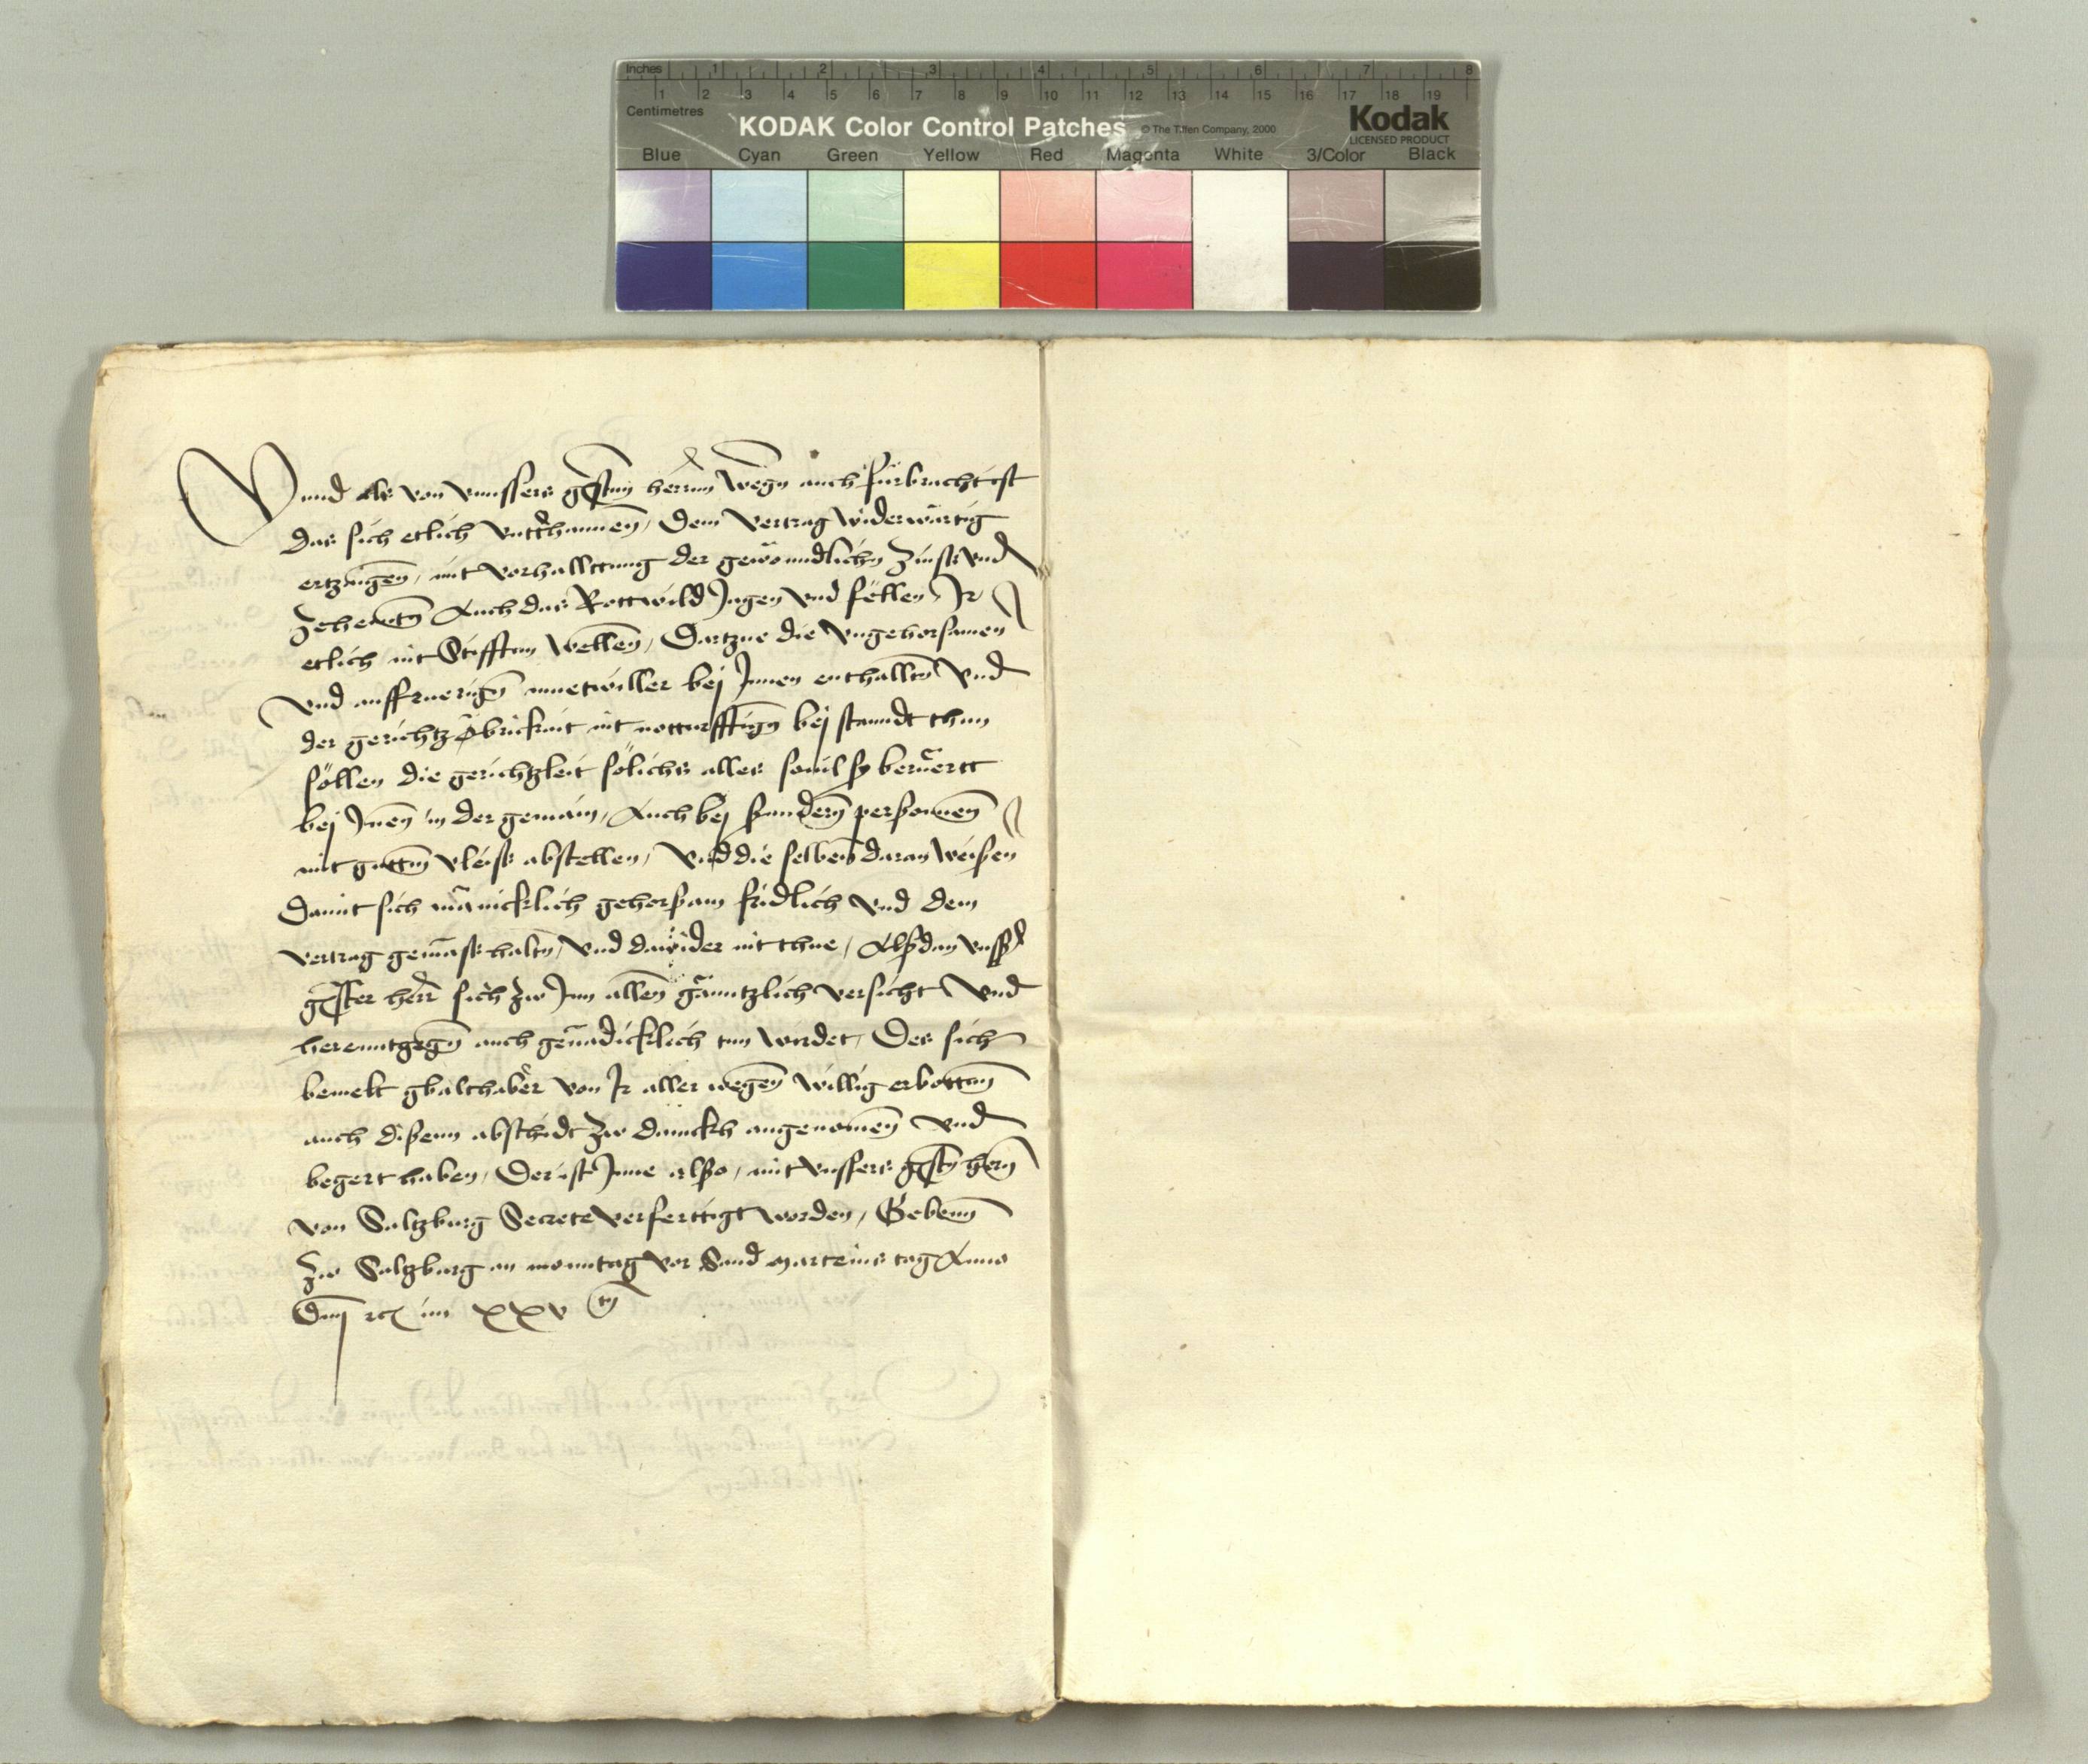 Inches 1 2 3 4 5 6 7 8
1 2 3 4 5 6 7 8 9 10 11 12 13 14 15 16 17 18 19
Centimetres
KODAK Color Control Patches © The Tiffen Company, 2000 Kodak
LICENSED PRODUCT
Blue Cyan Green Yellow Red Magenta White 3/Color Black
Vnnd als von vnnssers gstn herrnn wegn auch fürbracht ist
das sich etlich vntthannen, dem vertrag widerwärtig
ertzaigen, mit vorhallttung der gewonndlichn Zinss vnd
Zehentn Auch das Rottwild Jagen vnd fellen, Jr
etlich nit Stifften wellen, Dartzue die vngehorsamen
vnd auffruerign muetwiller bej Jnnen enthalltn vnd
der gerichtz Obrikait nit notturfftign bej stanndt thun
söllen die gerichtzleit sölichs alles souil sy beruertt
bej Jnen in der gemain, Auch bej sundern personnen
mit guttm vleiss abstellen, vnd die selben daran weisen
Damit sich mänicklich gehorsam fridlich vnd dem
vertrag gemäss haltn, vnd dawider nit thue, Alsdan vnss
gster herr sich zw Jnn allen gänntzlich versicht vnd
herenntgegn auch genadicklich tun wirdet, Des sich
bemelt gbalthaber von Jr aller wegen willig erbottn
auch disenn abschidt zw dannckh angenomen vnd
begert haben, Der ist Jnne also, mit vnssers gstn hern
von Saltzburg Secrete verferttigt worden, Gebenn
Zw Saltzburg an monntag vor Sand marteins tag Anno
Dmj rc im xxv tn